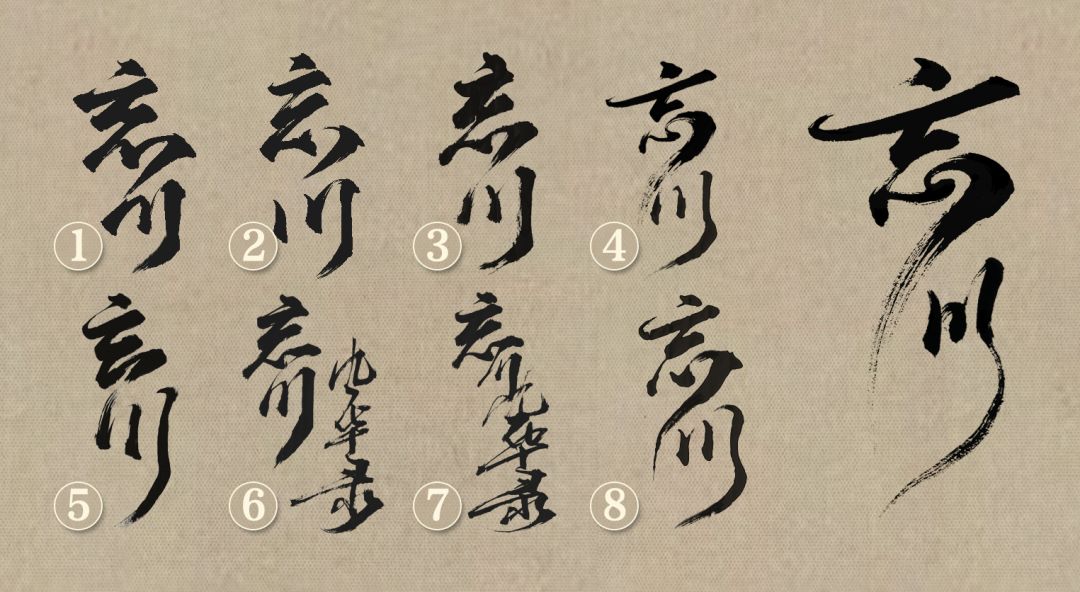 忘川
①
忘川
②
忘川
③
忘川
④
忘川
忘川
⑤
忘川
风华录
⑥
忘川
风华录
⑦
忘川
⑧